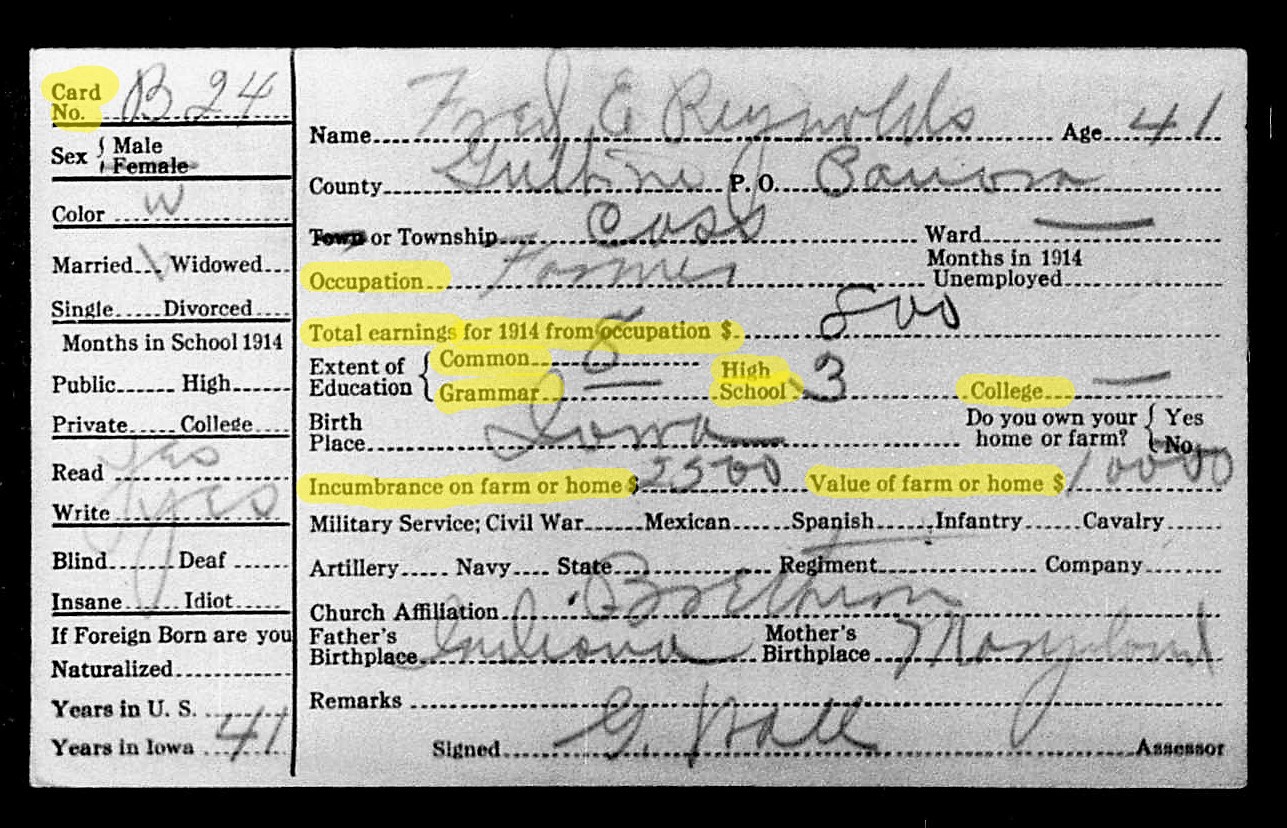 Card No. B 24
Sex { Male
Female
Color W
Married Widowed
Single Divorced
Months in School 1914
Public High
Private College
Read Yes
Write yes
Blind Deaf
Insane Idiot
If Foreign Born are you
Naturalized
Years in U. S.
Years in Iowa 41
Name Fred E Reynolds Age 41
County Guthrie P. O. Panora
Town or Township Cass Ward —
Occupation Farmer Months in 1914 Unemployed
Total earnings for 1914 from occupation $ 800
Extent of Education { Common 8
Grammar — High School 3 College —
Birth Place Iowa Do you own your home or farm? { Yes No
Incumbrance on farm or home $ 2500 Value of farm or home $ 10000
Military Service; Civil War Mexican Spanish Infantry Cavalry
Artillery Navy State Regiment Company
Church Affiliation Brethren
Father's Birthplace Indiana Mother's Birthplace Maryland
Remarks
Signed G. Hall Assessor